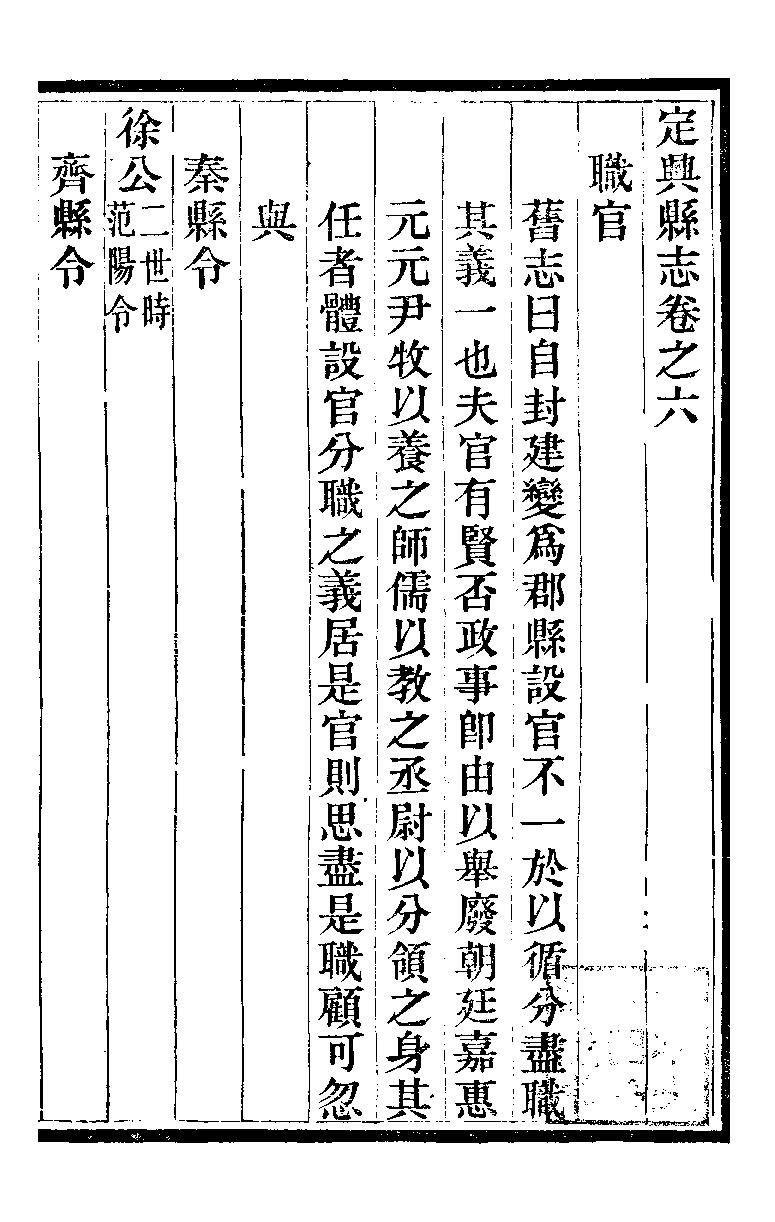 定興縣志卷之六
職官
舊志曰自封建變爲郡縣設官不一於以循分盡職
其義一也夫官有賢否政事卽由以舉廢朝廷嘉惠
元元尹牧以養之師儒以教之丞尉以分領之身其
任者體設官分職之義居是官則思盡是職顧可忽
與
秦縣令
徐公二世時
范陽令
齊縣令